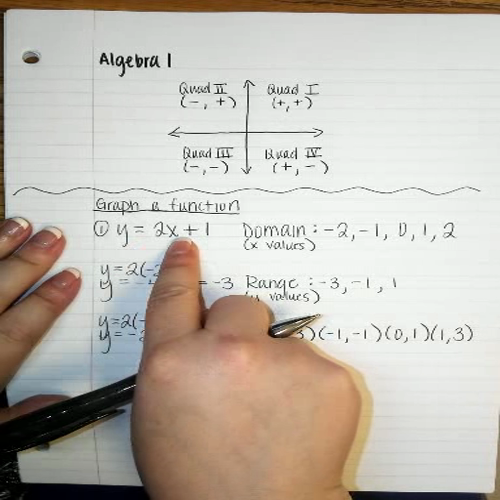 Algebra 1
Quad II Quad I
(-, +) (+, +)
Quad III Quad IV
(-, -) (+, -)
Graph a function
① y = 2x + 1 Domain : -2, -1, 0, 1, 2
(x values)
y=2(-2
y = = -3 Range : -3, -1, 1
values)
y=2(-
y= -2 3)(-1, -1)(0, 1)(1, 3)